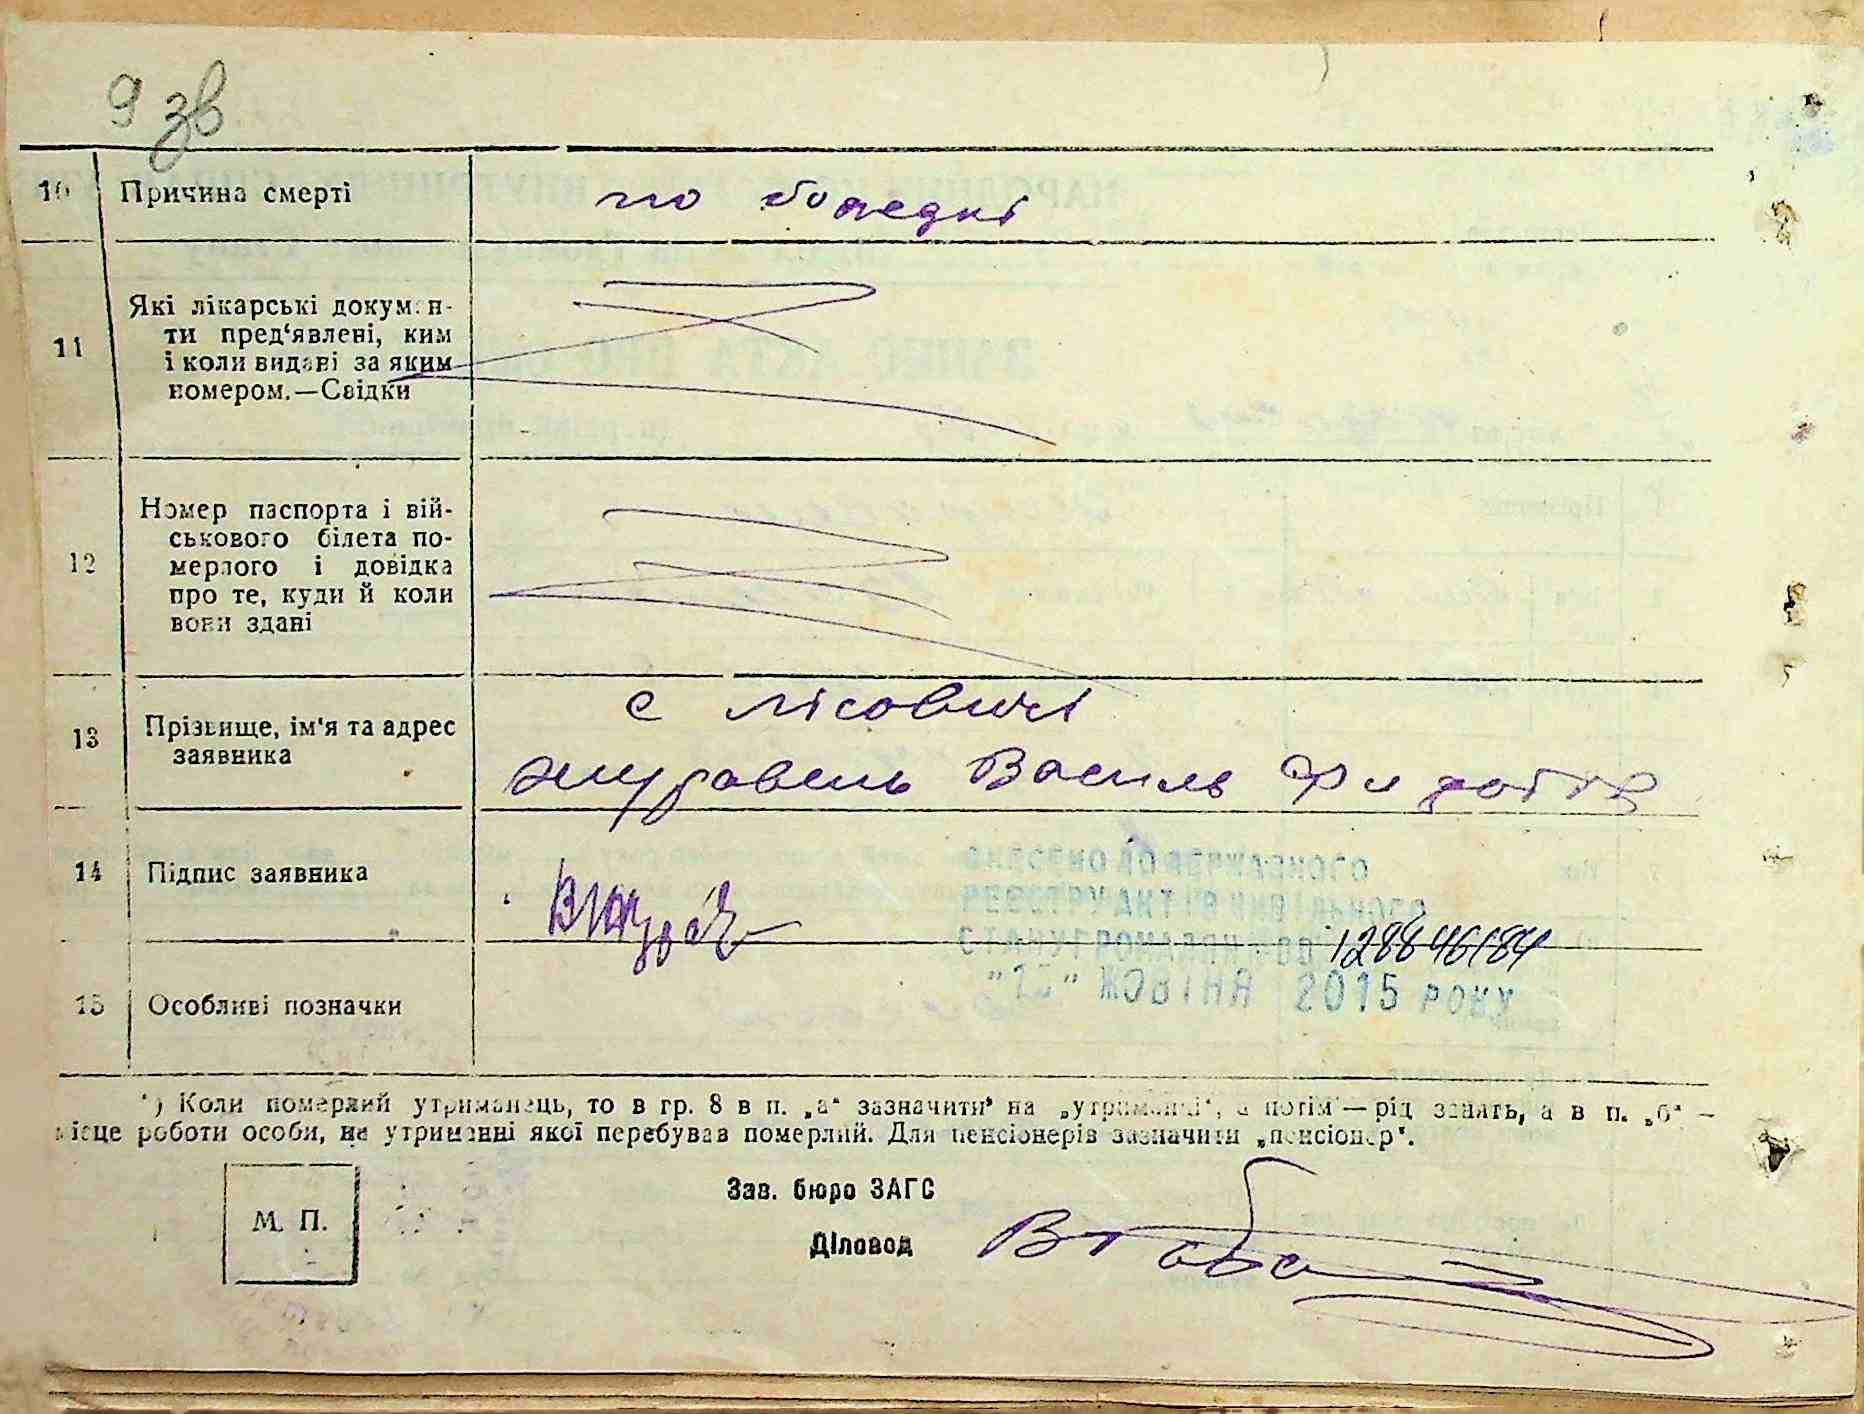 9 зв
10 Причина смерті
11 Які лікарські документи пред‘явлені, ким
і коли видані за яким
номером.—Свідки
12 Номер паспорта і вій-
ськового білета по-
мерлого і довідка
про те, куди й коли
вони здані
с Лісовичі
13 Прізвище, ім‘я та адрес
заявника
Журавель Василь
14 Підпис заявника
ВНЕСЕНО ДО ДЕРЖАВНОГО
РЕЄСТРУ АКТІВ ЦИВІЛЬНОГО
СТАНУ ГРОМАДЯН 128846184
ЖОВТНЯ 2015 РОКУ
15 Особливі позначки
*) Коли померлий утриманець, то в гр. 8 в п. „а“ зазначити на „утриманні“, а потім — рід занять, а в п. „б“ —
місце роботи особи, на утриманні якої перебував померлий. Для пенсіонерів зазначити „пенсіонер“.
М. П.
Зав. бюро ЗАГС
Діловод